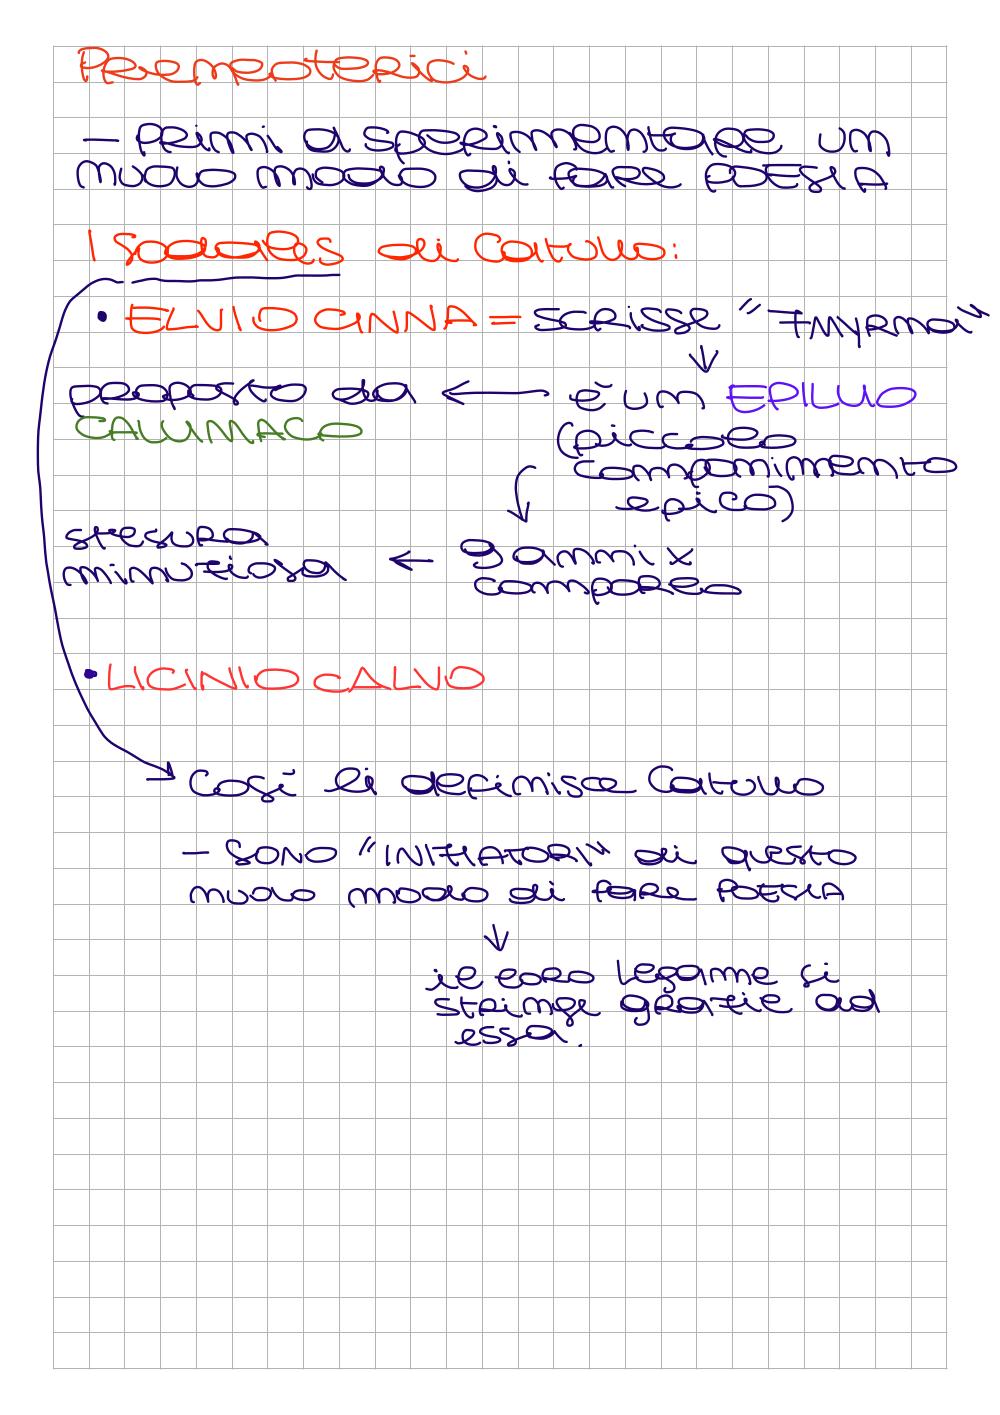 Preneoterici
- PRIMI a sperimentare un
nuovo modo di fare POESIA
I Sodales di Catullo:
• ELVIO CINNA = scrisse "Zmyrna"
↓
proposto da ← è un EPILLIO
CALLIMACO
(piccolo
componimento
epico)
stesura
minuziosa ← 9 anni x
comporlo
• LICINIO CALVO
→ Così li definisce Catullo
- SONO "INIZIATORI" di questo
nuovo modo di fare POESIA
↓
il loro legame si
stringe grazie ad
essa.